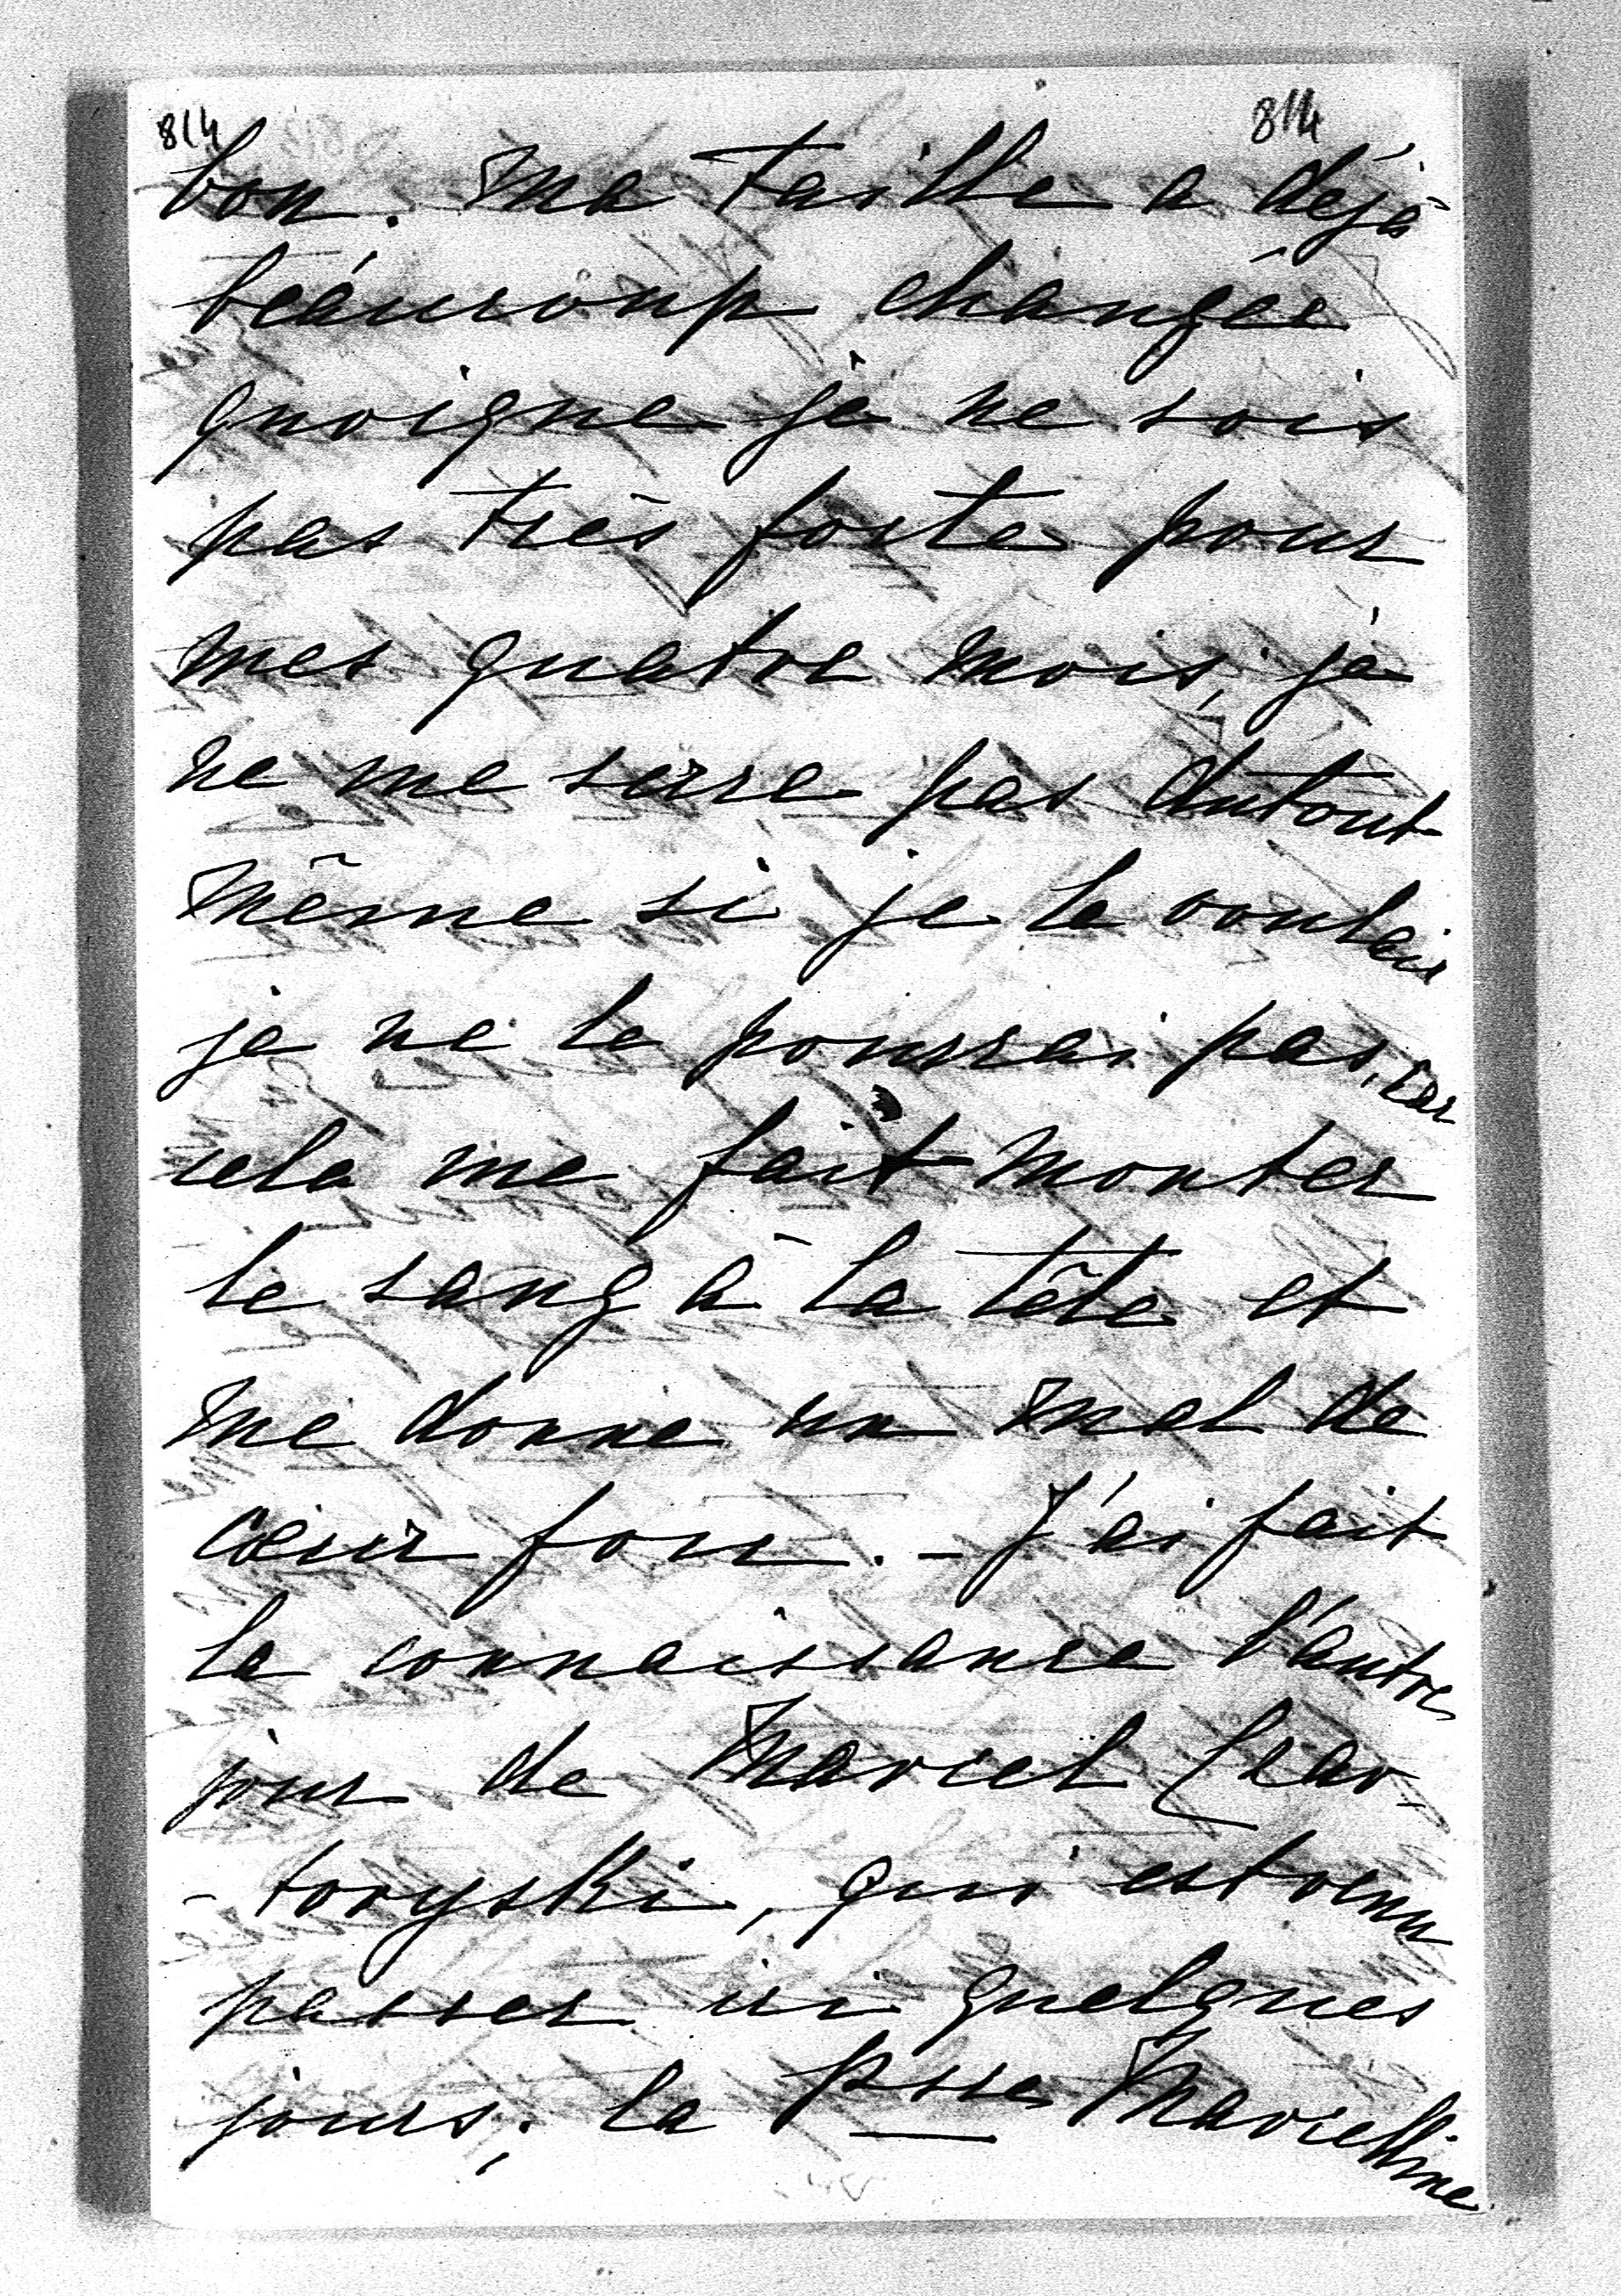 814 814
bon. Ma taille a déjà
beaucoup changée
quoique je ne sois
pas très forte pour
mes quatre mois, je
ne me serre pas dutout
même si je le voulais
je ne le pourrai pas, car
cela me fait monter
le sang à la tête et
me donne un mal de
cœur fou. - J'ai fait
la connaissance l'autre
jour de Marcel Czar-
-toryski, qui est venu
passer ici quelques
jours; la Psse Marcelline